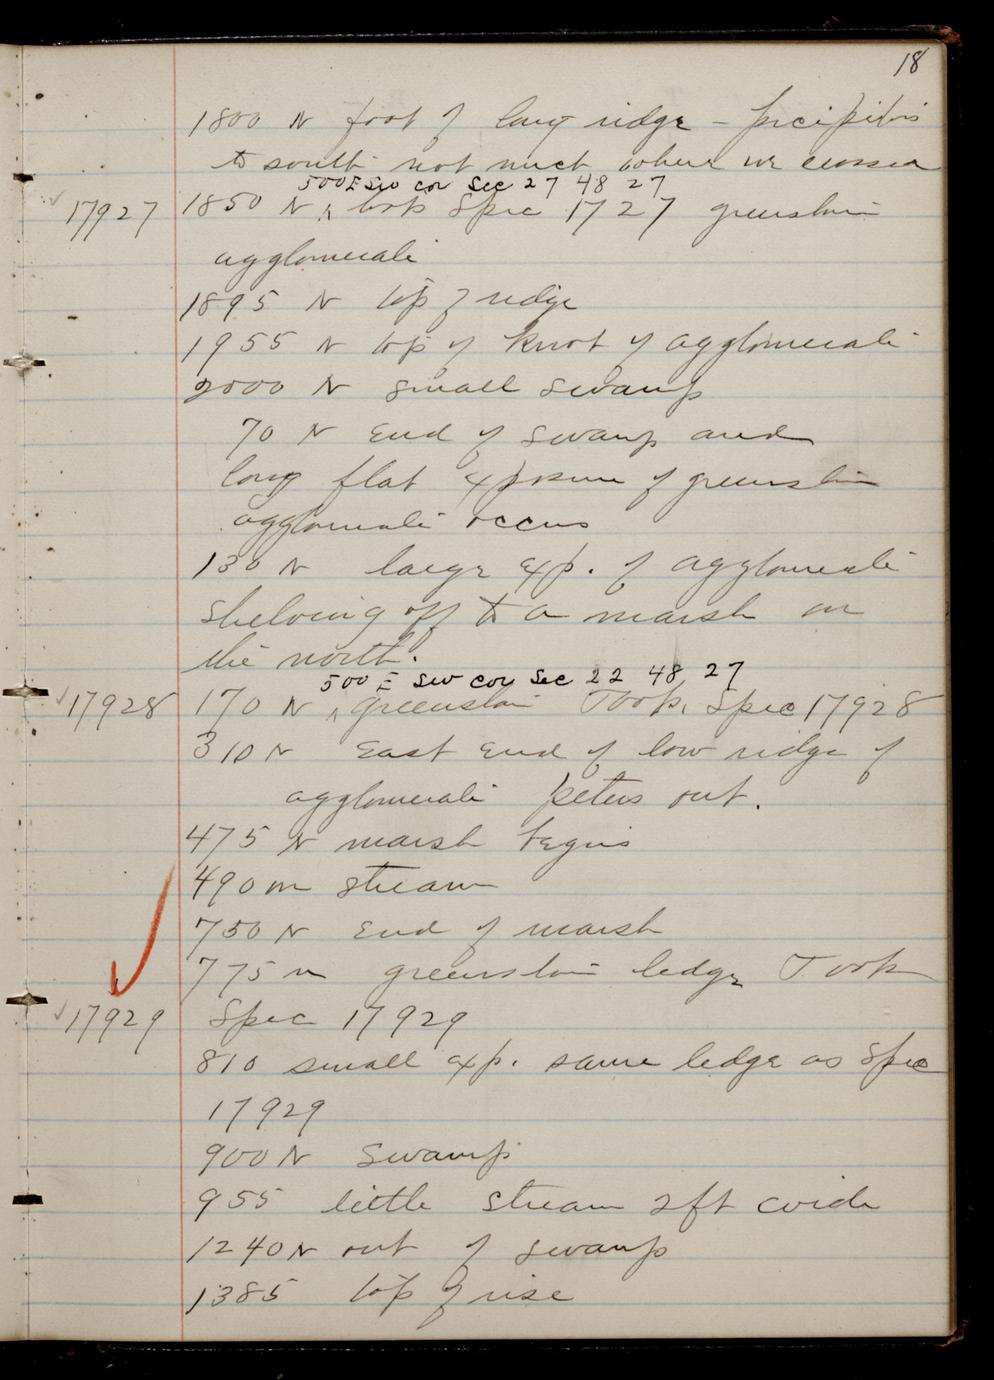 18
1800 N foot of long ridge -
to south not much where we crossed
500 E SW cor Sec 27 48 27
17927 1850 N ‸ took Spec 1727 greenstone
agglomerate
1895 N top of ridge
1955 N top of knot of agglomerate
2000 N small swamp
70 N End of swamp and
long flat exposure of greenstone
agglomerate occurs
130 N large exp. of agglomerate
shelving off to a marsh on
the north.
500 E SW cor Sec 22 48, 27
17928 170 N ‸ greenstone Took, Spec 17928
310 N East End of low ridge of
agglomerate peters out.
475 N marsh begins
490 N stream
750 N End of marsh
775 N greenstone ledge Took
17929 Spec 17929
810 small exp. same ledge as Spec
17929
900 N Swamp
955 little stream 2ft wide
1240 N out of swamp
1385 top of rise